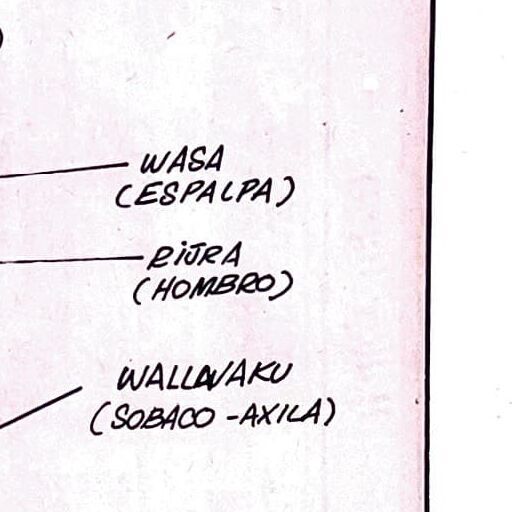 WASA
(ESPALPA)
RIJRA
(HOMBRO)
WALLWAKU
(SOBACO-AXILA)